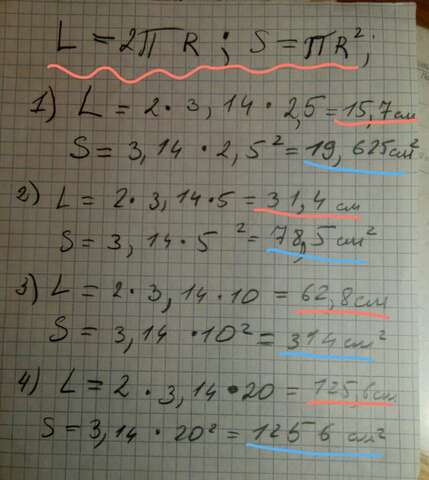 L = 2π R ; S = πR²;
1) L = 2 · 3, 14 · 2,5 = 15,7 см
S = 3, 14 · 2, 5² = 19, 625 см²
2) L = 2 · 3, 14 · 5 = 31,4 см
S = 3, 14 · 5 ² = 78,5 см²
3) L = 2 · 3, 14 · 10 = 62,8 см
S = 3, 14 · 10² = 314 см²
4) L = 2 · 3, 14 · 20 = 125,6 см
S = 3,14 · 20² = 1256 см²